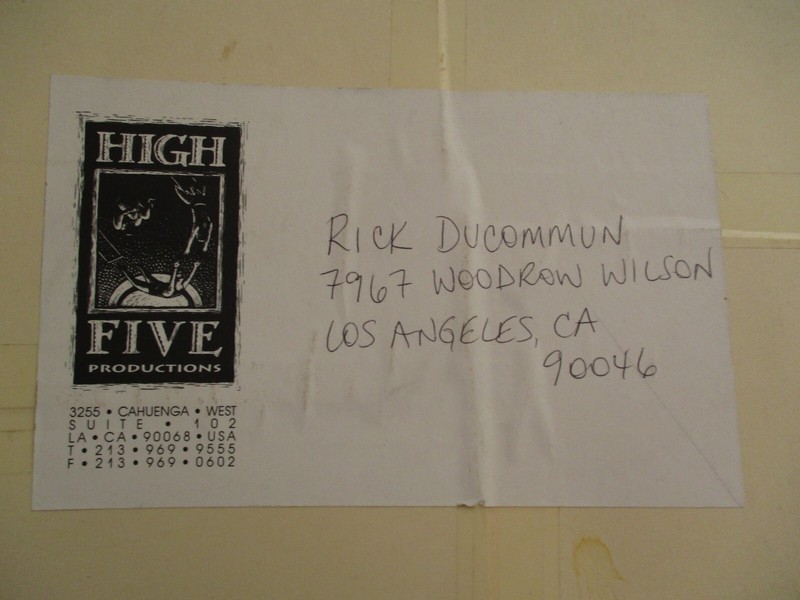 HIGH
FIVE
PRODUCTIONS
3255 • CAHUENGA • WEST
SUITE • 102
LA • CA • 90068 • USA
T • 213 • 969 • 9555
F • 213 • 969 • 0602
RICK DUCOMMUN
7967 WOODROW WILSON
LOS ANGELES, CA
90046